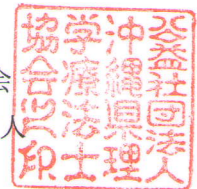 公益社団法人
沖縄県理
学療法士
協会之印
会
人